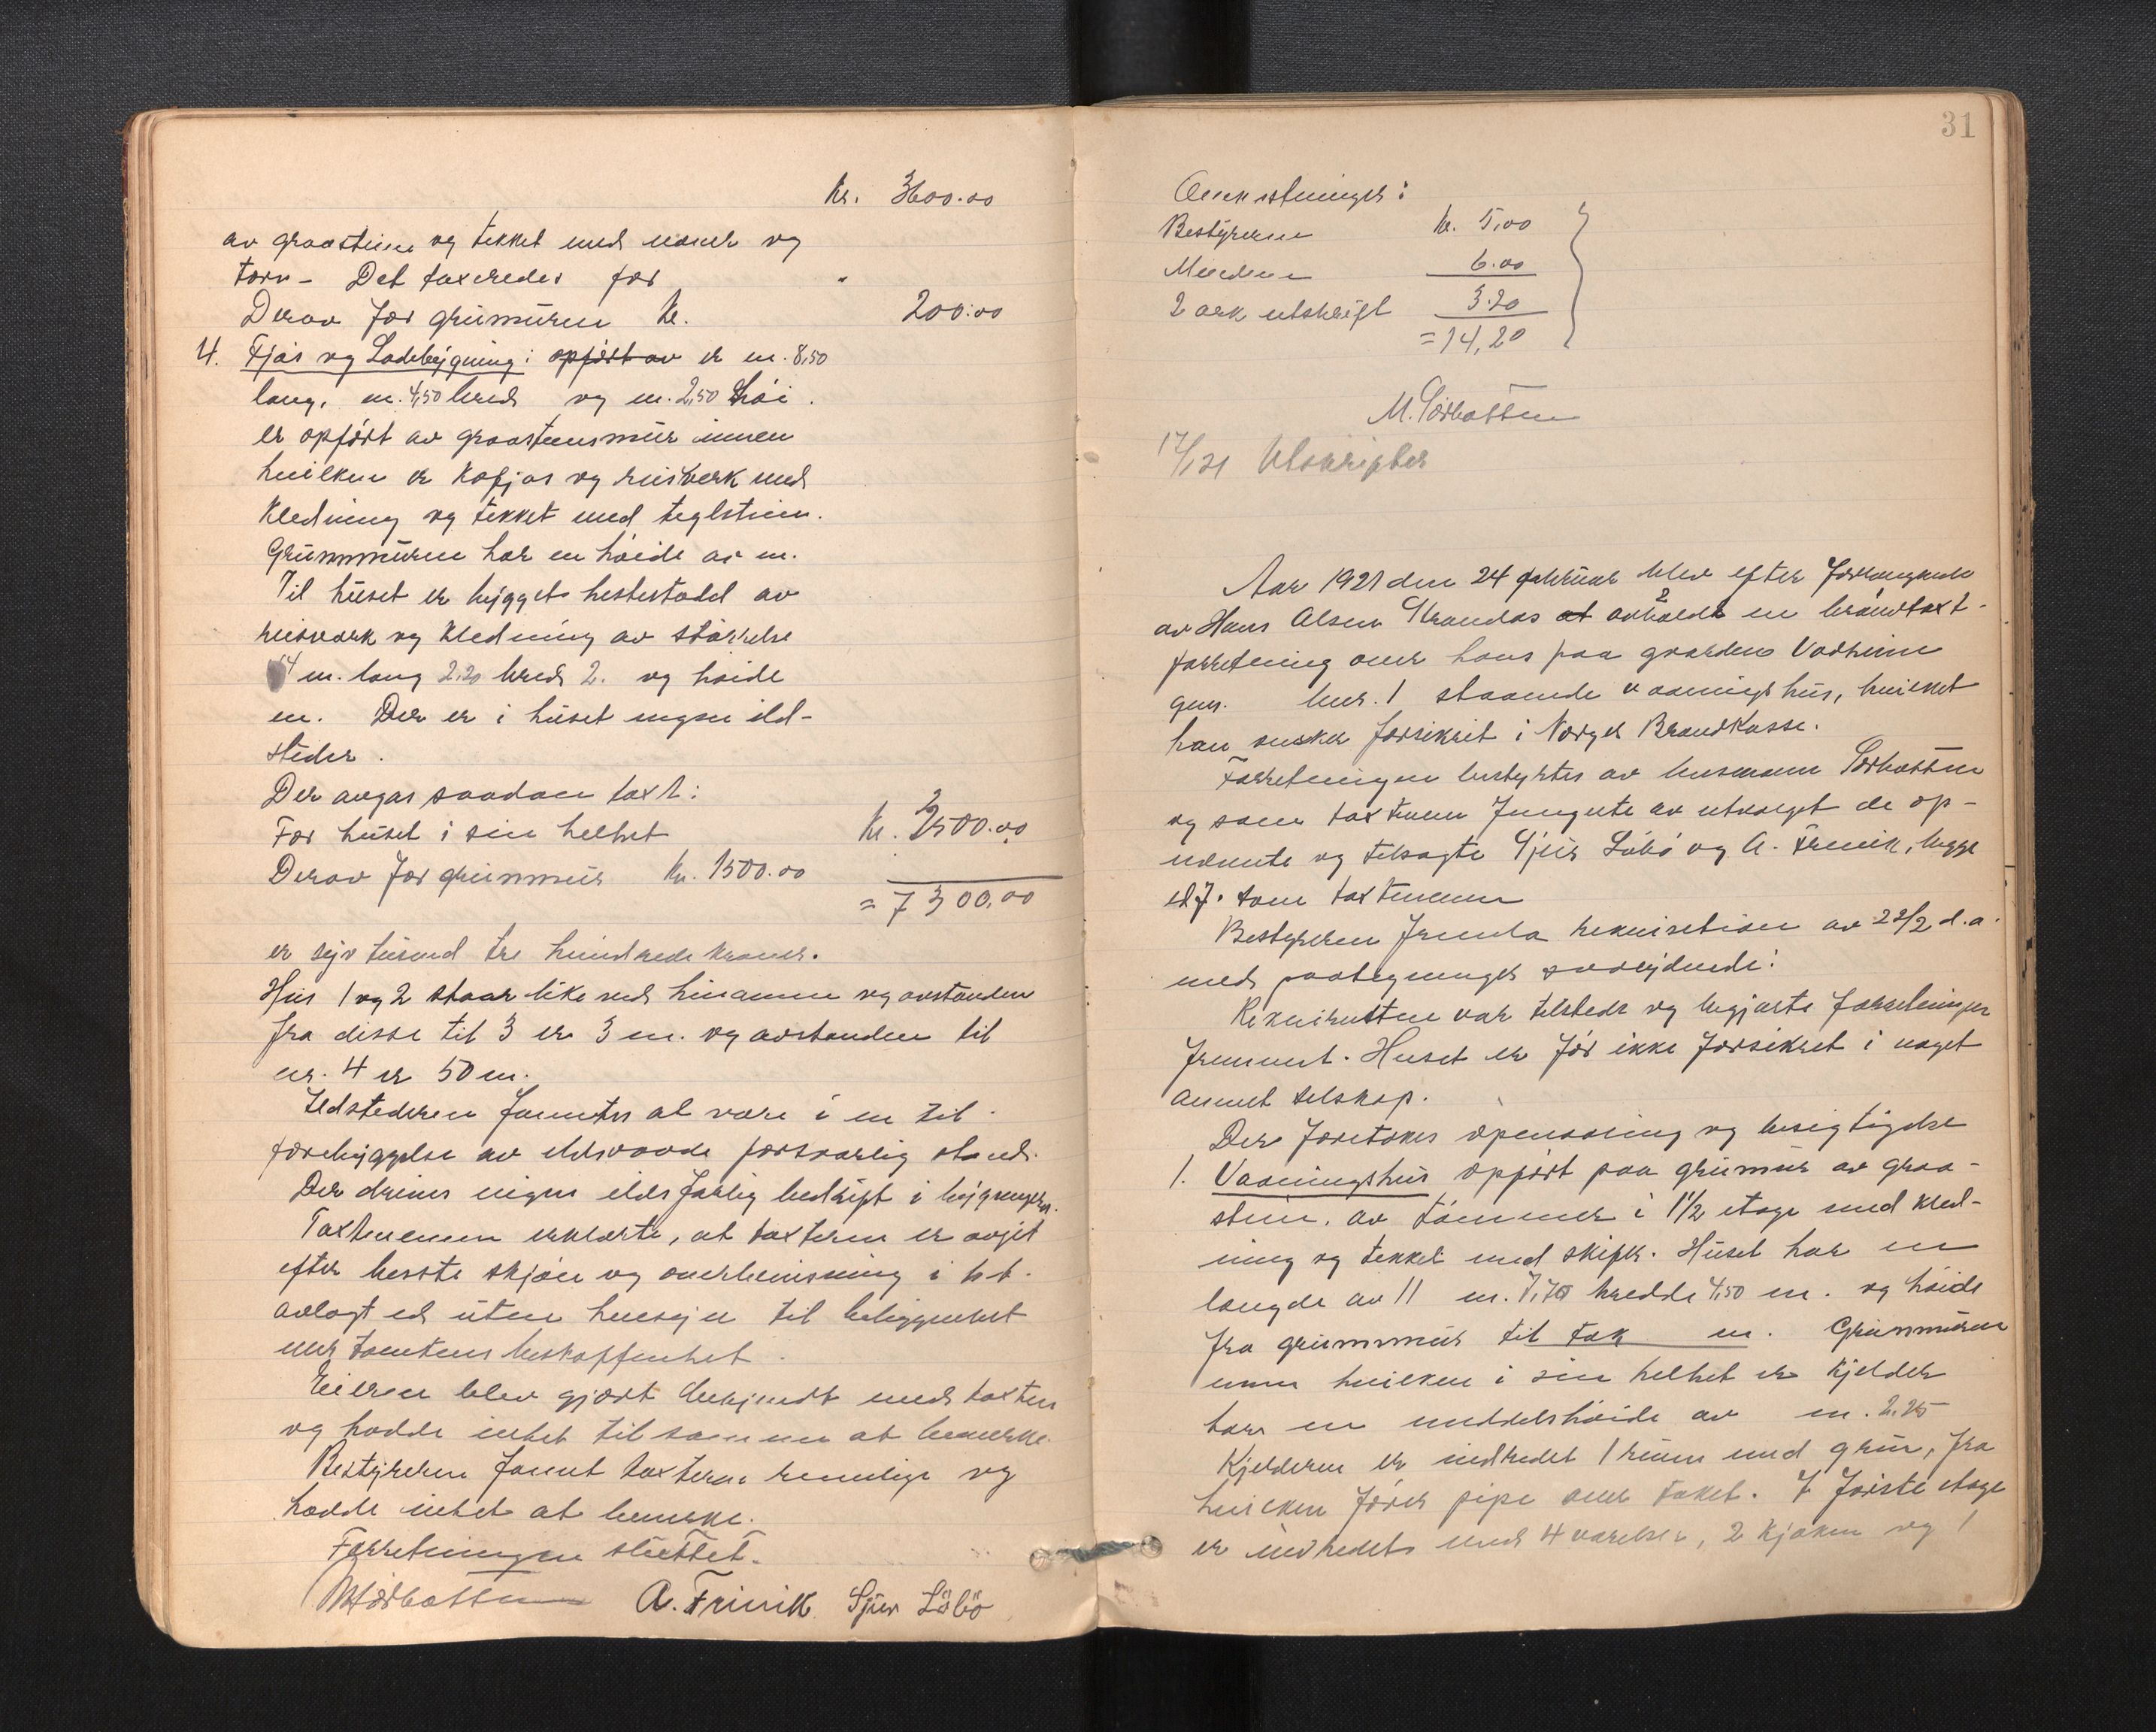 Kr. 3600.00
av graasteine og tekket med næver og
torv - Det taxeredes for "
Derav for grunmuren Kr. 200.00
4. Fjøs og Ladebygning: opført av er m. 8,50
lang, m. 4,50 bred og m. 2,50 høi.
er opført av graastensmur innen
hvilken er Kofjøs og reisverk med
Kledning og tekket med teglstein.
Grunnmuren har en høide av m.
Til huset er bygget hestestald av
reisverk og Kledning av størrelse
4 m. lang 2.20 bred 2. og høide
m. Der er i huset ingen ild-
steder.
Der avgas saadan taxt:
For huset i sin helhet Kr. 3500.00
Derav for grunmur Kr. 1500.00
= 7300,00
er syv tusend tre hundrede kroner.
Hus 1 og 2 staar like ved hinanen og avstanden
fra disse til 3 er 3 m. og avstanden til
nr. 4 er 50 m.
Ildstederen fanntes at være i en til
forebyggelse av eldsvaade forsvarlig stand.
Der drives ingen eldsfarlig bedrift i bygningen.
Taxtmennen erklærte, at taxtern er avgit
efter beste skjøn og overbevisning i h.t.
avlagt ed uten hensyn til beliggenhet
eller tomtens beskaffenhet.
Eieren blev gjort bekjendt med taxten
og hadde intet til samme at bemerke.
Bestyreren fant taxterne rimelige og
hadde intet at bemerke.
Forretningen sluttet.
M Sørbotten A. Trinik Sjur Løbø
31
Omkostninger:
Bestyreren Kr. 5,00
Mændene 6.00
2 ark utskrift 3.20
= 14,20
M. Sørbotten
17/1 21 Utskripter
Aar 1921 den 24 februar blev efter forlangende
av Hans Olsen Strandos at avholdt en brandtaxt-
forretning over hans paa gaarden Vadheim
gnr. bnr. 1 staaende vaaningshus, hvilket
han ønsker forsikret i Norges Brandkasse.
Forretningen bestyrtes av lensmann Sørbotten
og som taxtmen fungerte av utvalget de op-
nævnte og tilsagte Sjur Løbø og A. Trinik, begge
edf. som taxtmenn
Bestyreren fremla rekvisition av 22/2 d.a.
med paategninger saalydende:
Rekvirenten var tilstede og begjærte forretningen
fremmet. Huset er før ikke forsikret i noget
annet selskap.
Der foretokes opmaaling og besigtigelse
1. Vaaningshus opført paa grunmur av graa-
stein, av tømmer i 1 1/2 etage med kled-
ning og tekket med skifer. Huset har en
længde av 11 m. 7,70 bredde 4,50 m. og høide
fra grunnmur til tak m. Grunnmuren
innen hvilken i sin helhet er Kjelder
har en middelshøide av m. 2.25
Kjelderen er indredet 1 rum med gruve, fra
hvilken fører pipe over taket. I første etage
er indredet med 4 værelser, 2 kjøken og 1